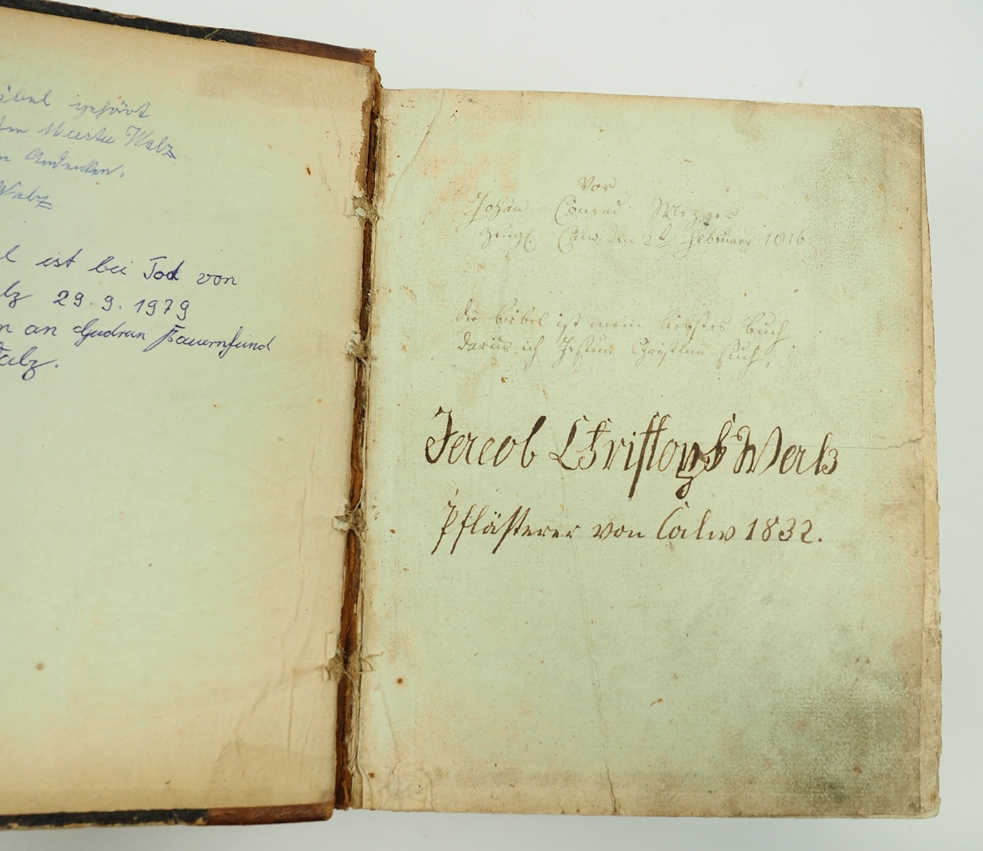 ibel gehört
Walz
Andenken.
Walz
l ist bei Tod von
lz 29.9.1979
n an Gudrun Bauernfeind
Walz.
Von
Johan Conrad Metzger
Calw den Februar 1816
die biebel ist mein liebstes buch
darin ich Jesum Christum such.
Jacob Christoph Walz
Pflästerer von Calw 1832.